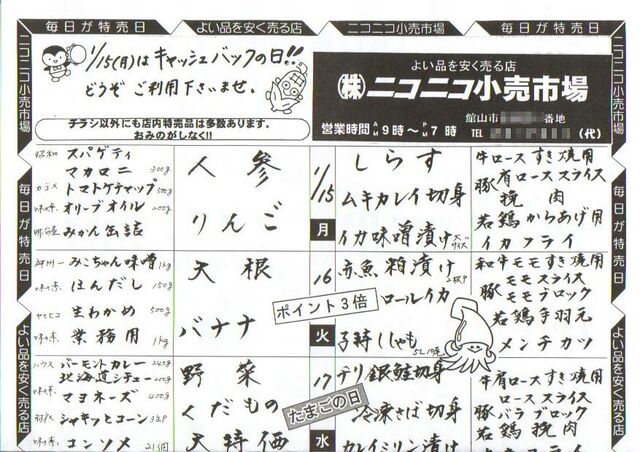 毎日が特売日
よい品を安く売る店
ニコニコ小売市場
毎日が特売日
ニコニコ小売市場
毎日が特売日
よい品を安く売る店
ニコニコ小売市場
毎日が特売日
よい品を安く売る店
1/15(月)はキャッシュバックの日!!
どうぞご利用下さいませ。
チラシ以外にも店内特売品は多数あります。
おみのがしなく!!
よい品を安く売る店
(株)ニコニコ小売市場
館山市
番地
営業時間 AM9時〜PM7時 TEL
(代)
昭和 スパゲティ
マカロニ 300g
カゴメ トマトケチャップ 500g
味の素 オリーブオイル 200g
みかん缶詰
人参
りんご
1/15
月
しらす
ムキカレイ切身
イカ味噌漬け 大サイズ
牛ロースすき焼用
豚肩ローススライス
挽肉
若鶏からあげ用
イカフライ
神州一 みこちゃん味噌 1kg
味の素 ほんだし 150g
ヤマヒコ 生わかめ 500g
味の素 業務用 1kg
大根
バナナ
16
火
赤魚粕漬け
ポイント3倍
ロールイカ
子持ししゃも
和牛モモすき焼用
モモスライス
豚モモブロック
若鶏手羽元
メンチカツ
ハウス バーモントカレー 240g
北海道シチュー
味の素 マヨネーズ 400g
シャキッとコーン
味の素 コンソメ 21個
野菜
くだもの
大特価
17
水
たまごの日
チリ銀鮭切身
冷凍さば切身
カレイミリン漬け
牛肩ロースすき焼用
ローススライス
豚バラブロック
若鶏挽肉